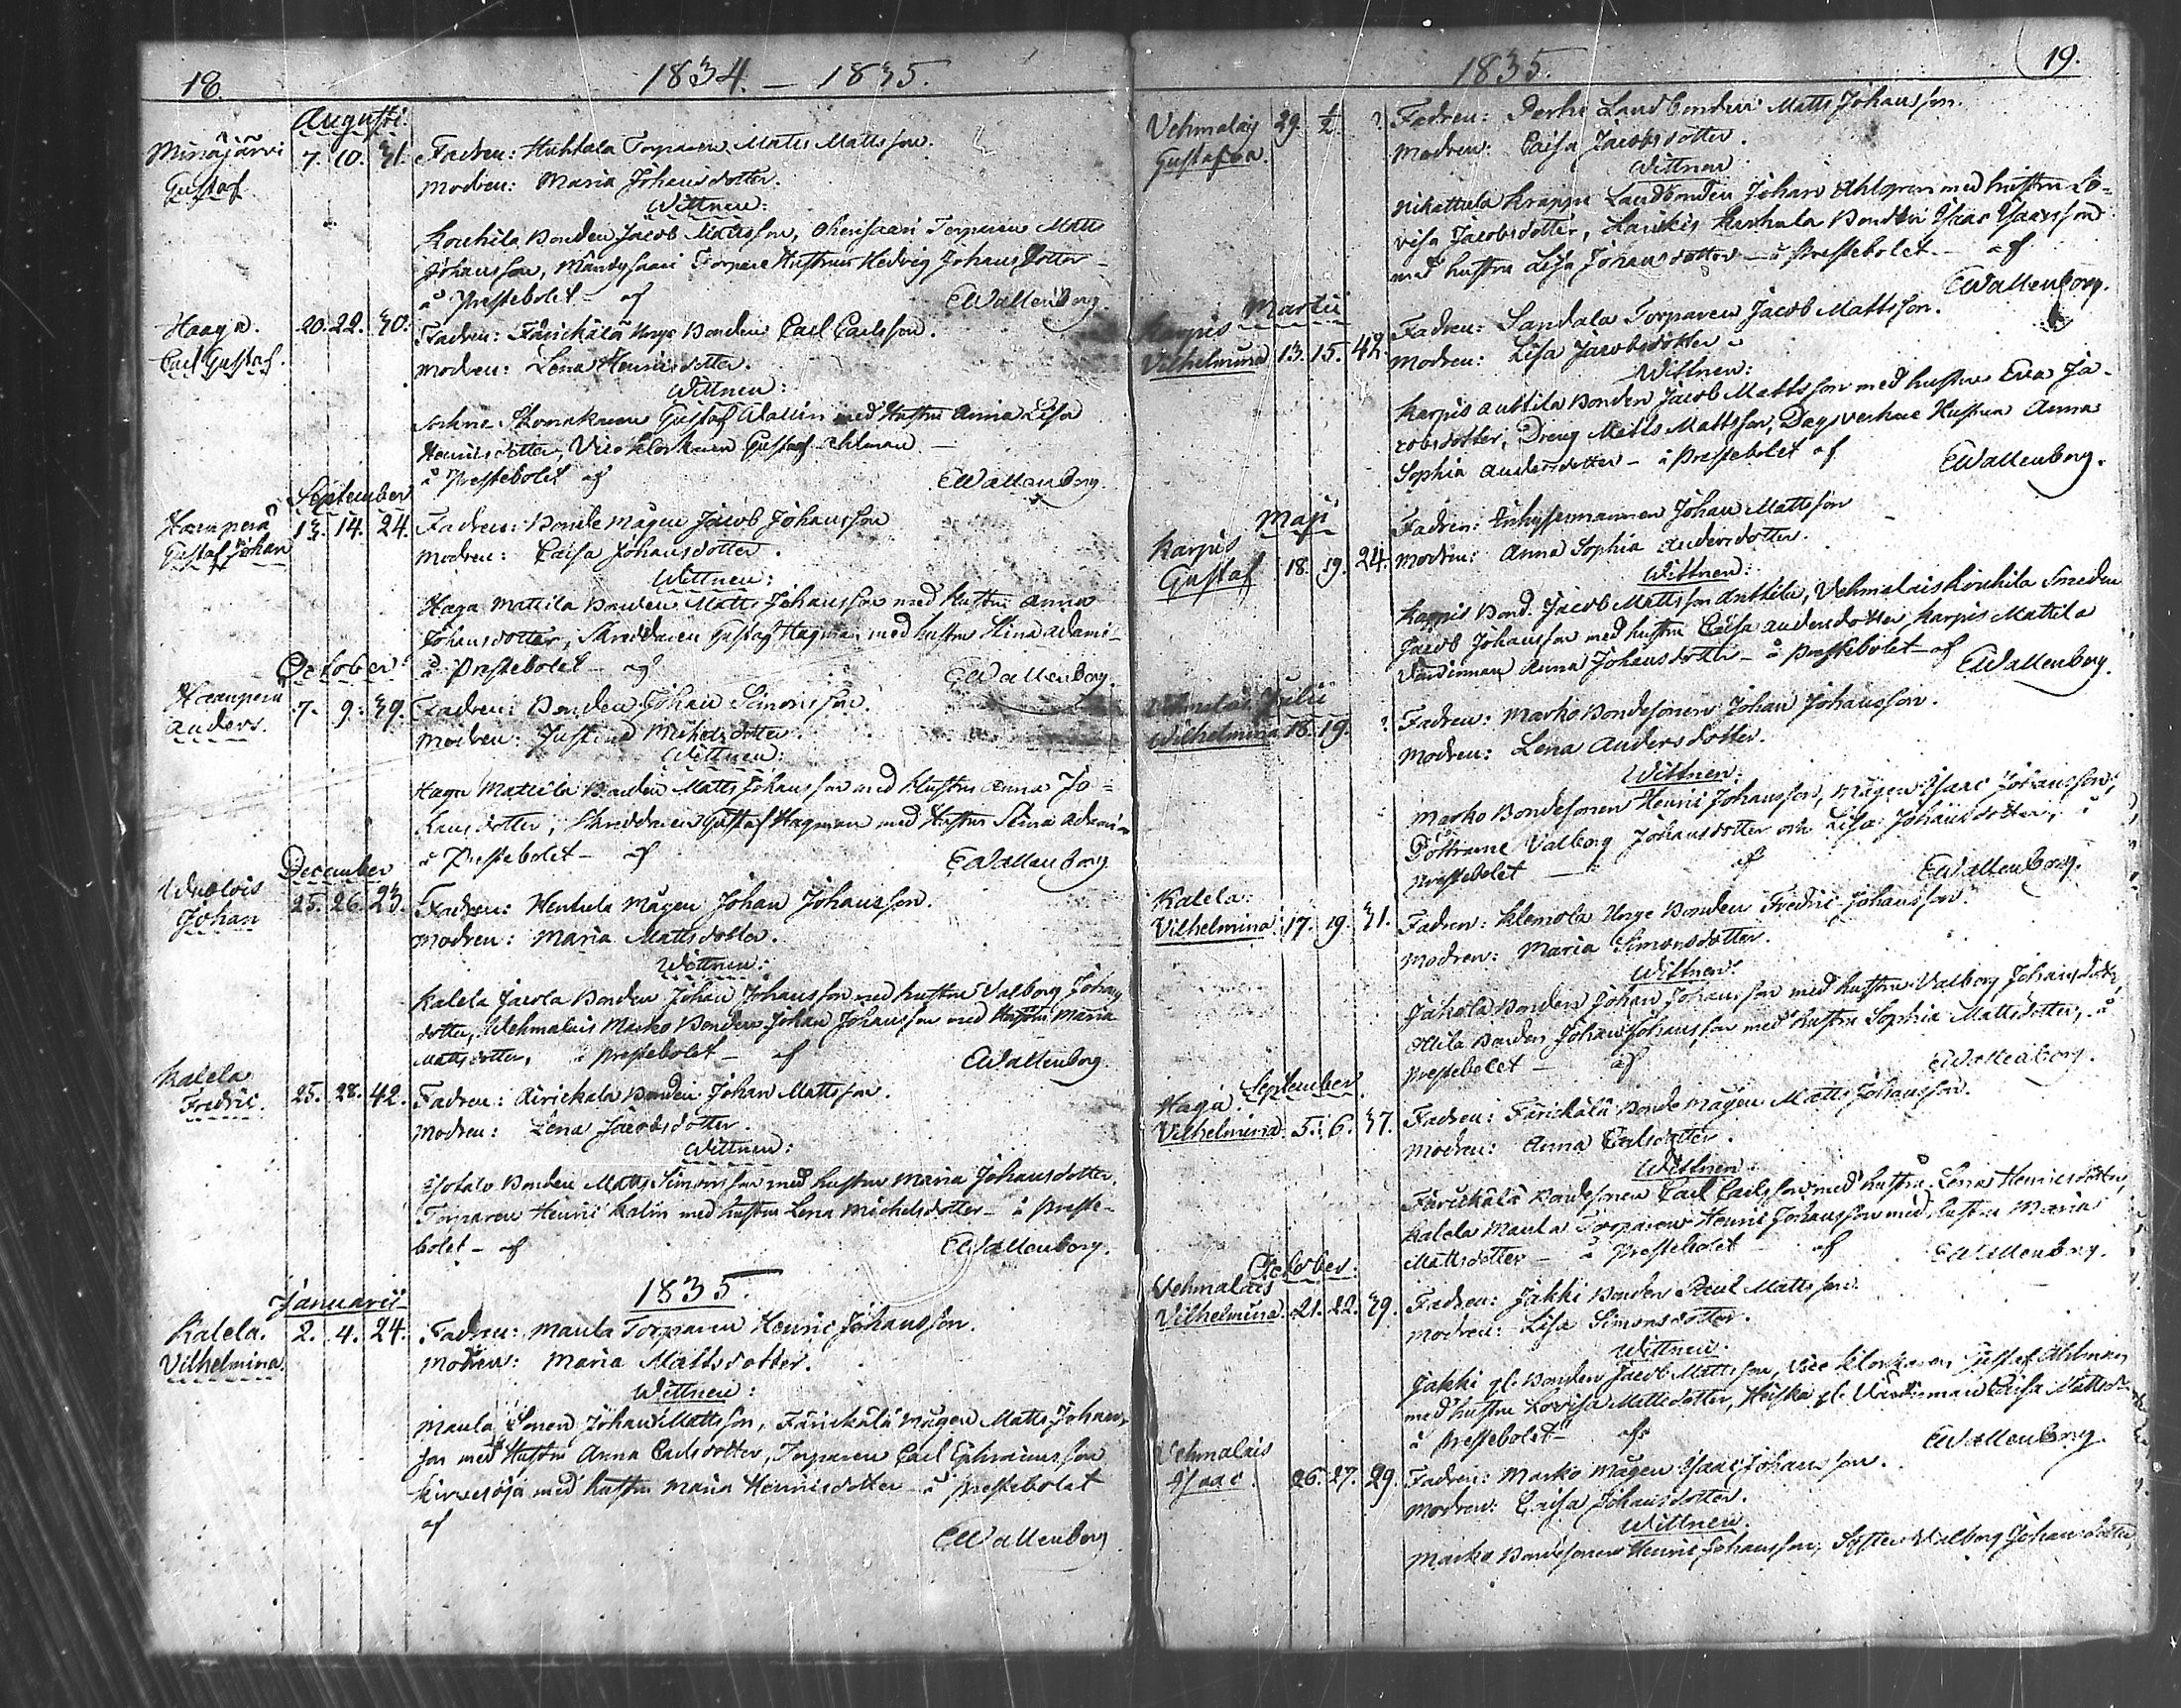 18. 1834. — 1835.
Augusti.
Minäjärvi 7. 10. 31. Fadren: Huhtala Torparen Matts Mattsson.
Gustaf Modren: Maria Johansdotter.
Wittnen:
Kouhila Bonden Jacob Mattsson, Torparen Matts
Johansson, Torpare Hustrun Hedvig Johans Dotter —
å Prestebolet — af EWallenborg.
Haaga. 20. 22. 30. Fadren: Färickälä Unge Bonden Carl Carlsson.
Carl Gustaf. Modren: Lena Henricsdotter.
Wittnen:
Sockne Skomakaren Gustaf Wallin med Hustru Anna Lisa
Henricsdotter, Vice Klockaren Gustaf Ahlman —
å Prestebolet af EWallenborg.
September
Haunperä 13. 14. 24. Fadren: Bonde Mågen Jacob Johansson
Gustaf Johan Modren: Caisa Johansdotter.
Wittnen:
Haga Mattila Bonden Matts Johansson med Hustru Anna
Johansdotter, Skreddaren Gustaf Hagman med hustru Stina Adami —
å Prestebolet — af EWallenborg.
October
Haunperä 7. 9. 39. Fadren: Bonden Johan Simonsson.
Anders. Modren: Justina Michelsdotter.
Wittnen:
Haga Mattila Bonden Matts Johansson med Hustru Anna Jo=
hansdotter, Skreddaren Gustaf Hagman med Hustru Stina Adami —
å Prestebolet — af EWallenborg
December
Johan 25. 26. 23. Fadren: Mågen Johan Johansson.
Modren: Maria Mattsdotter.
Wittnen:
Kalela Jacola Bonden Johan Johansson med hustru Valborg Johans
dotter, Wehmalais Marko Bonden Johan Johansson med Hustru Maria
Mattsdotter, å prestebolet — af EWallenborg
Kalela 25. 28. 42. Fadren: Äirickala Bonden Johan Mattsson.
Fredric. Modren: Lena Jacobsdotter.
Wittnen:
Bonden Matts Simonsson med hustru Maria Johansdotter,
Torparen Henric Kalin med hustru Lena Michelsdotter — å preste-
bolet — af EWallenborg.
1835.
Januarii
Kalela. 2. 4. 24. Fadren: Maula Torparen Henric Johansson.
Vilhelmina. Modren: Maria Mattsdotter.
Wittnen:
Maula Sonen Johan Mattsson, Färickälä Mågen Matts Johans-
son med Hustru Anna Carlsdotter, Torparen Carl Ephraimsson
med hustru Maria Henricsdotter — å prestebolet
af EWallenborg
1835. 19.
Vehmalais 29. 1/2. ? Fadren: Perho Landbonden Matts Johansson.
Gustafva. Modren: Caisa Jacobsdotter.
Wittnen
Nikattula Krappi Landbonden Johan Ahlgren med hustru Lo=
visa Jacobsdotter, Lauckis Karhula Bonden Isaac Isaacsson
med hustru Lisa Johansdotter — å Prestebolet — af
EWallenborg.
Martii
Karpis Fadren: Sandala Torparen Jacob Mattsson.
Vilhelmina 13. 15. 42. Modren: Lisa Jacobsdotter.
Wittnen:
Karpis Anttila Bonden Jacob Mattsson med hustru Eva Ja-
cobsdotter, Dreng Matts Mattsson, Dagsverkare Hustrun Anna
Sophia Andersdotter — å Prestebolet af EWallenborg.
Maji
Karpis Fadren: Inhysesmannen Johan Mattsson
Gustaf 18. 19. 24. Modren: Anna Sophia Andersdotter.
Wittnen:
Karpis Bond. Jacob Mattsson Anttila, Vehmalais Kouhila Smeden
Jacob Johansson med hustru Caisa Andersdotter, Karpis Mattila
Värdinnan Anna Johansdotter — å prestebolet — af EWallenborg.
Vehmalais Julii Fadren: Marko Bondesonen Johan Johansson.
Wilhelmina 18. 19. ? Modren: Lena Andersdotter.
Wittnen:
Marko Bondesonen Henric Johansson, Mågen Isaac Johansson,
Döttrarne Valborg Johansdotter och Lisa Johansdotter, å
prestebolet — af EWallenborg.
Kalela. Fadren: Klemola Unge Bonden Fredric Johansson.
Vilhelmina. 17. 19. 31. Modren: Maria Simonsdotter.
Wittnen:
Jakola Bonden Johan Johansson med hustru Valborg Johansdotter,
Ottila Bonden Johan Johansson med hustru Sophia Mattsdotter, å
prestebolet — af EWallenborg.
September
Haga. Fadren: Färickälä Bonde Mågen Matts Johansson.
Vilhelmina 5. 6. 37. Modren: Anna Carlsdotter.
Wittnen
Färickälä Bondesonen Carl Carlsson med hustru Lena Henricsdotter,
Kalela Maula Torparen Henric Johansson med hustru Maria
Mattsdotter — å prestebolet — af EWallenborg.
October.
Vehmalais Fadren: Jakki Bonden Paul Mattsson.
Vilhelmina 21. 22. 39. Modren: Lisa Simonsdotter.
Wittnen:
Jakki gl. Bonden Jacob Mattsson, Vice Klockaren Gustaf Ahlman
med hustru Lovisa Mattsdotter, Heiska gl. Värdinnan Caisa Mattsd=
å prestebolet — af EWallenborg.
Vehmalais Fadren: Marko Mågen Isaac Johansson.
Isaac. 26. 27. 29. Modren: Caisa Johansdotter.
Wittnen.
Marko Bondesonen Henric Johansson, Syster Valborg Johansdotter,